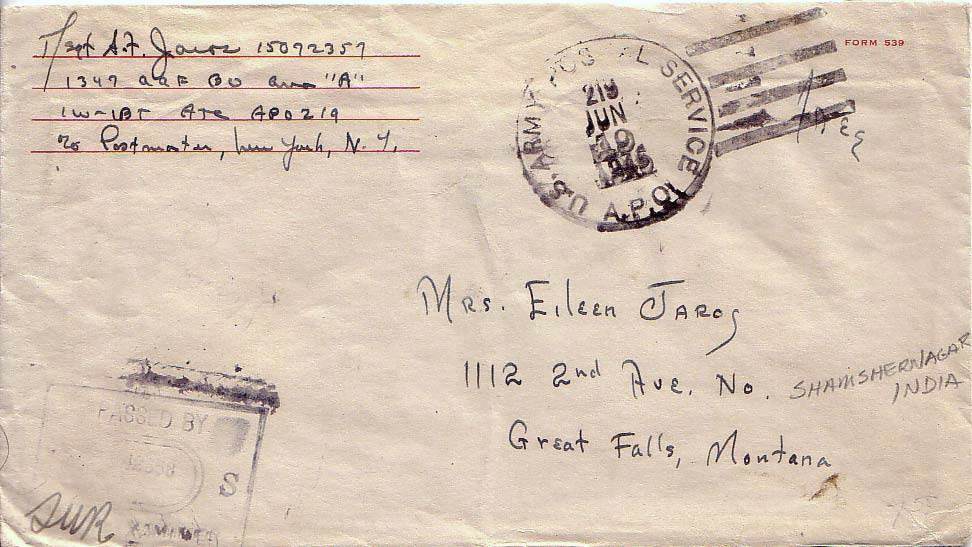 T/Sgt A.F. Jaros 15092357
1347 AAF BU "A"
IW-IBT ATC APO 219
c/o Postmaster, New York, N.Y.
FORM 539
U.S. ARMY POSTAL SERVICE
219
JUN
19
1945
A.P.O.
Free
Mrs. Eileen Jaros
1112 2nd Ave. No.
SHAMSHERNAGAR
INDIA
Great Falls, Montana
PASSED BY
S